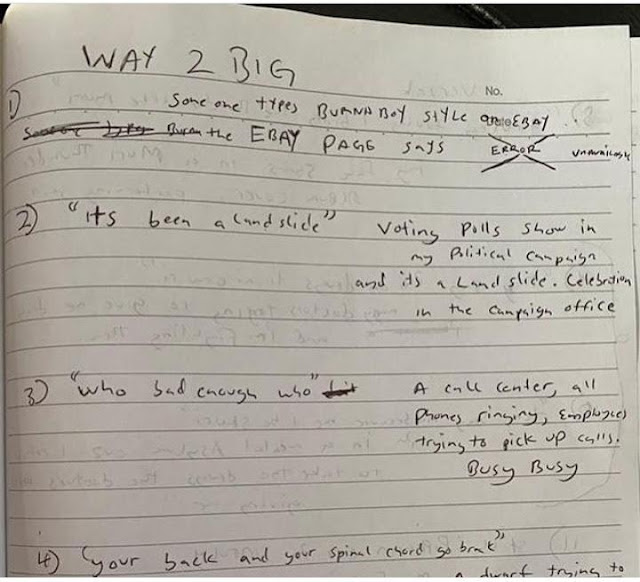 WAY 2 BIG
No.
1) Some one types BURNA BOY STYLE on EBAY ..
Someone types Burn the EBAY PAGE says ERROR unavailable
2) "its been a Landslide" Voting Polls show in
my Political Campaign
and its a Land slide. Celebration
in the Campaign office
3) "Who bad enough who" A call center, all
Phones ringing, Employees
trying to pick up calls.
Busy Busy
4) "your back and your spinal chord go brak"
a dwarf trying to